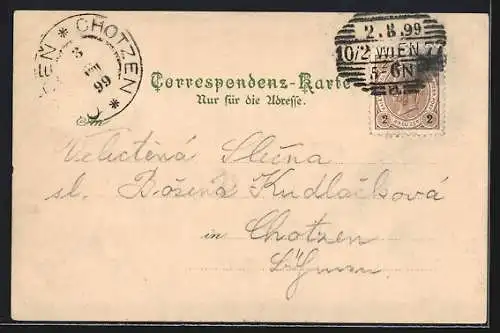 CHOTZEN * CHOTZEN *
3
VIII
99
2.8.99
10/2 WIEN 7
6N
Correspondenz-Karte
Nur für die Adresse.
An
2 2
Velectěná Slečna
sl. Božena Kudláčková
in Chotzen
Böhmen